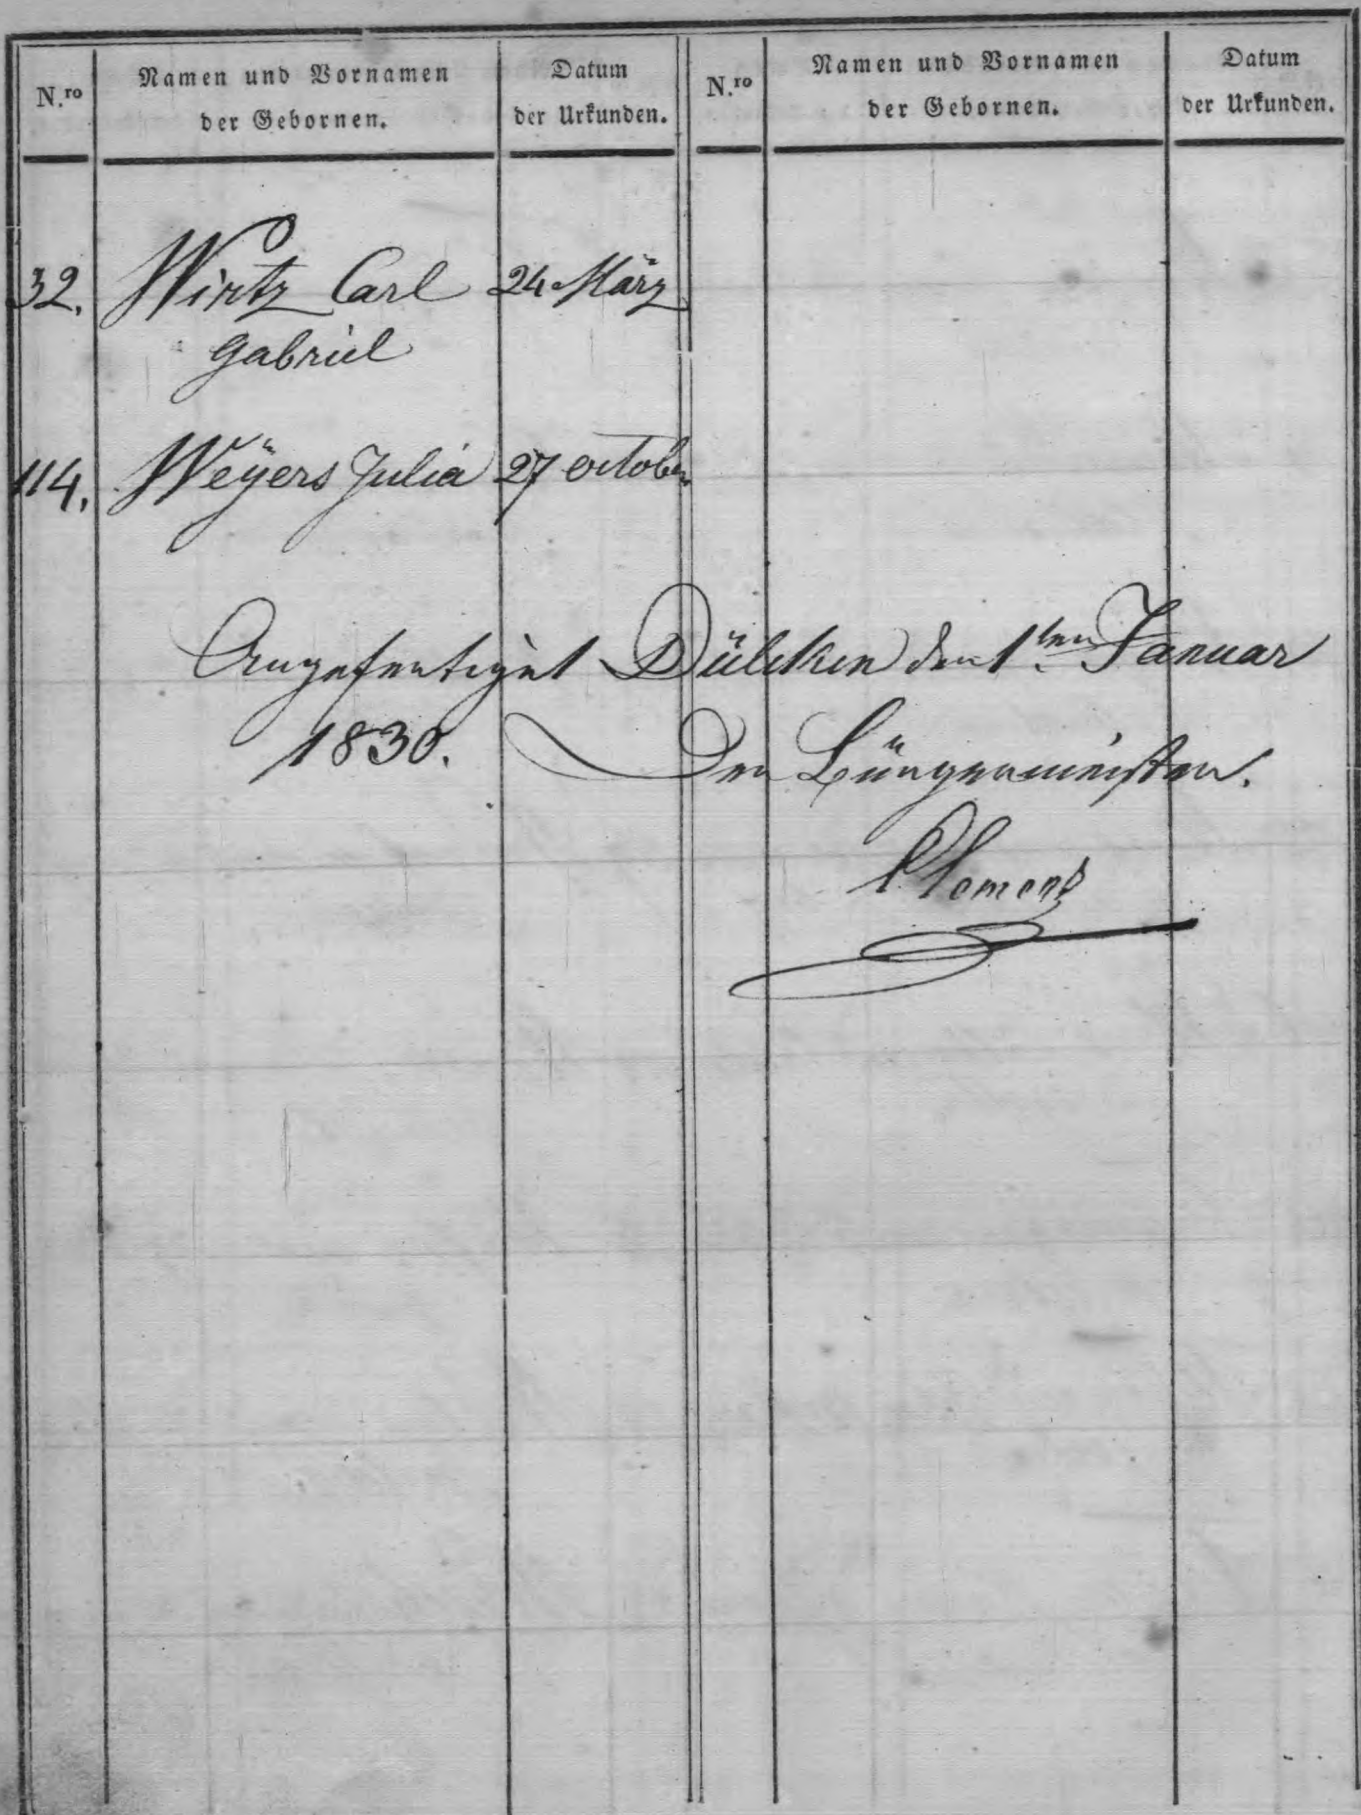 N.ro Namen und Vornamen der Gebornen. Datum der Urkunden. N.ro Namen und Vornamen der Gebornen. Datum der Urkunden.
32. Wirtz Carl 24 März
Gabriel
114. Weÿers Julia 27 october
Angefertiget Dülken den 1ten Januar
1830. Der Bürgermeister.
Clemens